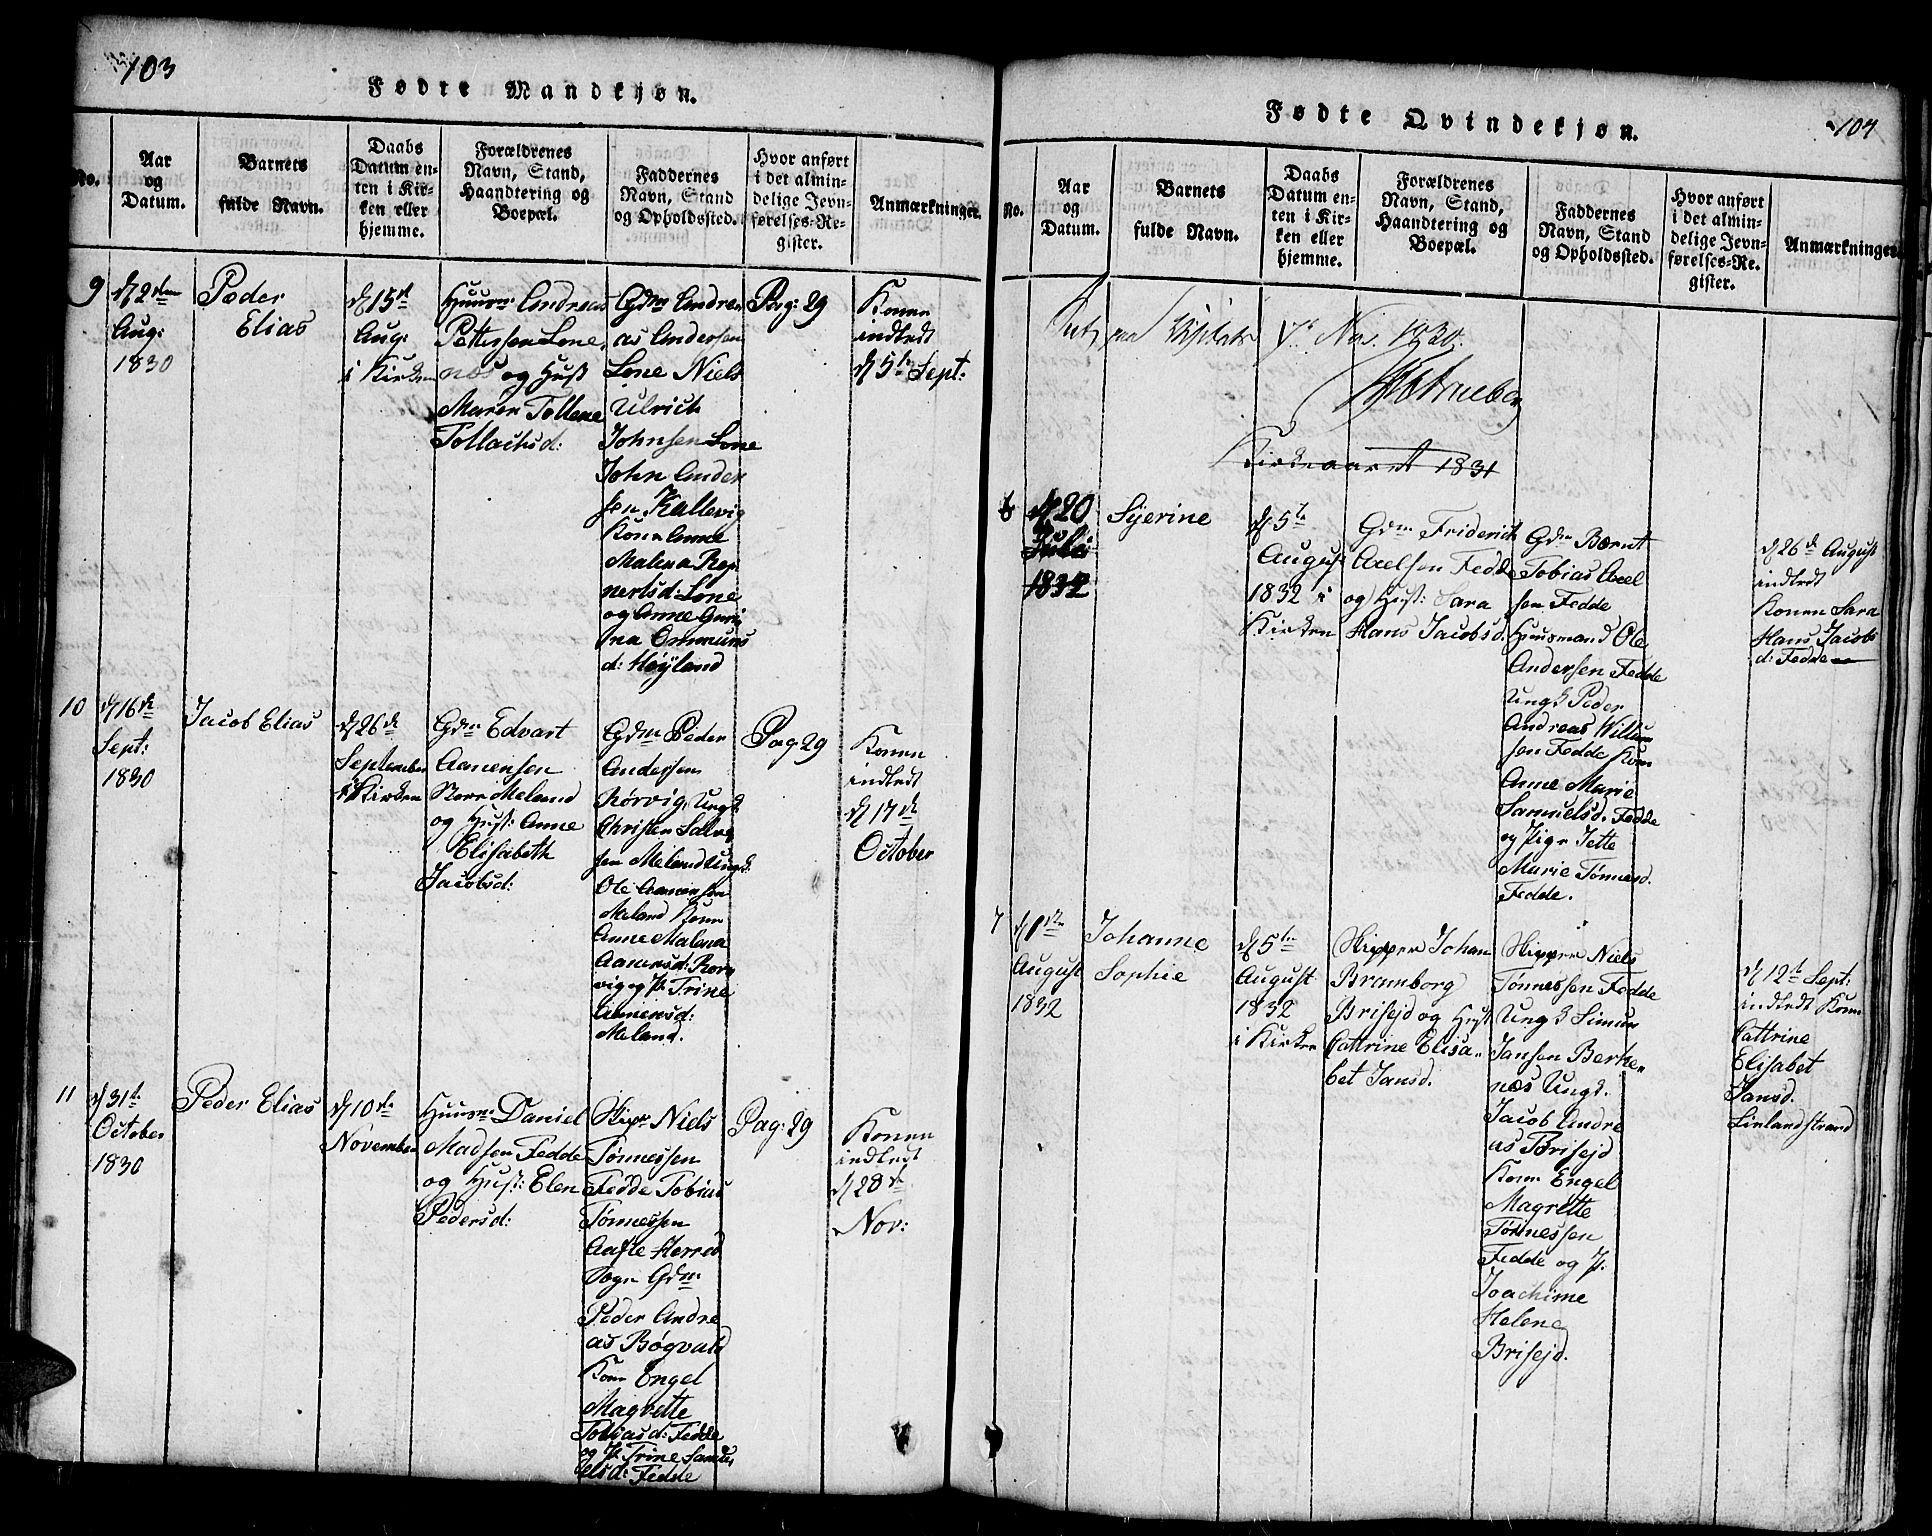 103
Fødte Mandkjøn.
No.
Aar
og
Datum.
Barnets
fulde Navn.
Daabs
Datum en-
ten i Kir-
ken eller
hjemme.
Forældrenes
Navn, Stand,
Haandtering og
Boepæl.
Faddernes
Navn, Stand
og Opholdssted.
Hvor anført
i det almin-
delige Jevn-
førelses-Re-
gister.
Anmærkninger.
9
Aug:
1830
Peder
Elias
d 15d
Aug:
i Kirken
Huusm Andreas
Pettersen Lone,
nes og Hust
Maren Tollene
Tollachsd:
Gdm Andre
as Andersen
Lone Niels
Ulrich
Johnsen Lone
John Ander
sen Kallevig
Kone Anne
Malena Rey
nertsd: Lone
og Anne Guri
na Ommuns
d: Høyland
Pag: 29
Konen
indledt
d 5te Sept:
10
d 16de
Sept:
1830
Jacob Elias
d 26de
September
i Kirken
Gdm Edvart
Aanensen
Store Meland
og Hust: Anne
Elisabeth
Jacobsd:
Gdm Peder
Andersen
Rørvig, Ungk
Christen Salve
sen Meland Ungk
Ole Aanensen
Meland Kone
Anne Malena
Aanensd: Rørv
vig og P. Trine
Aanensd:
Meland.
Pag: 29
Konen
indledt
d 17de
October
11
d 31te
October
1830
Peder Elias
d 10de
November
Huusm Daniel
Madsen Fedde
og Hust: Elen
Pedersd:
Skip Niels
Tønnessen
Fedde Tobias
Tønnessen
Herred
Sogn Gdm
Peder Andre
as Bøgvald
Kone Engel
Magrette
Tobiasd: Fedde
og P. Trine Samu
elsd: Fedde
Pag: 29
Konen
indledt
d 28de
Nov:
104
Fødte Qvindekjøn.
No.
Aar
og
Datum.
Barnets
fulde Navn.
Daabs
Datum en-
ten i Kir-
ken eller
hjemme.
Forældrenes
Navn, Stand,
Haandtering og
Boepæl.
Faddernes
Navn, Stand
og Opholdssted.
Hvor anført
i det almin-
delige Jevn-
førelses-Re-
gister.
Anmærkninger.
Nov. 1830.
Kirkeaaret 1831
6
d 20
Juli
1832
Syerine
d 5te
August
1832 i
Kirken
Gdm Friderich
Axelsen Fedde
og Hust: Sara
Hans Jacobsd.
Gdm Bernt
Tobias Axel
sen Fedde
Huusmand Ole
Andersen Fedde
Ungk Peder
Andreas Willum
sen Fedde Kone
Anne Marie
Samuelsd. Fedde
og Pige Jette
Marie Tønnesd.
Fedde.
d 26de August
indledt
Konen Sara
Hans Jacobs
d: Fedde
7
d 1ste
August
1832
Johanne
Sophie
d 5te
August
1832
i Kirken
Skipper Johan
Bramborg
Brisejd og Hust
Cattrine Elisa-
bet Jansd.
Skipper Niels
Tønnessen Fedde
Ungk Simun
Jansen Berke
nes Ungk.
Jacob Andre
as Brisejd
Kone Engel
Magrette
Tønnessen
Fedde og P.
Joachime
Helene
Brisejd.
d 12te Sept:
indledt Konen
Cattrine
Elisabet
Jansd.
Linlandstrand